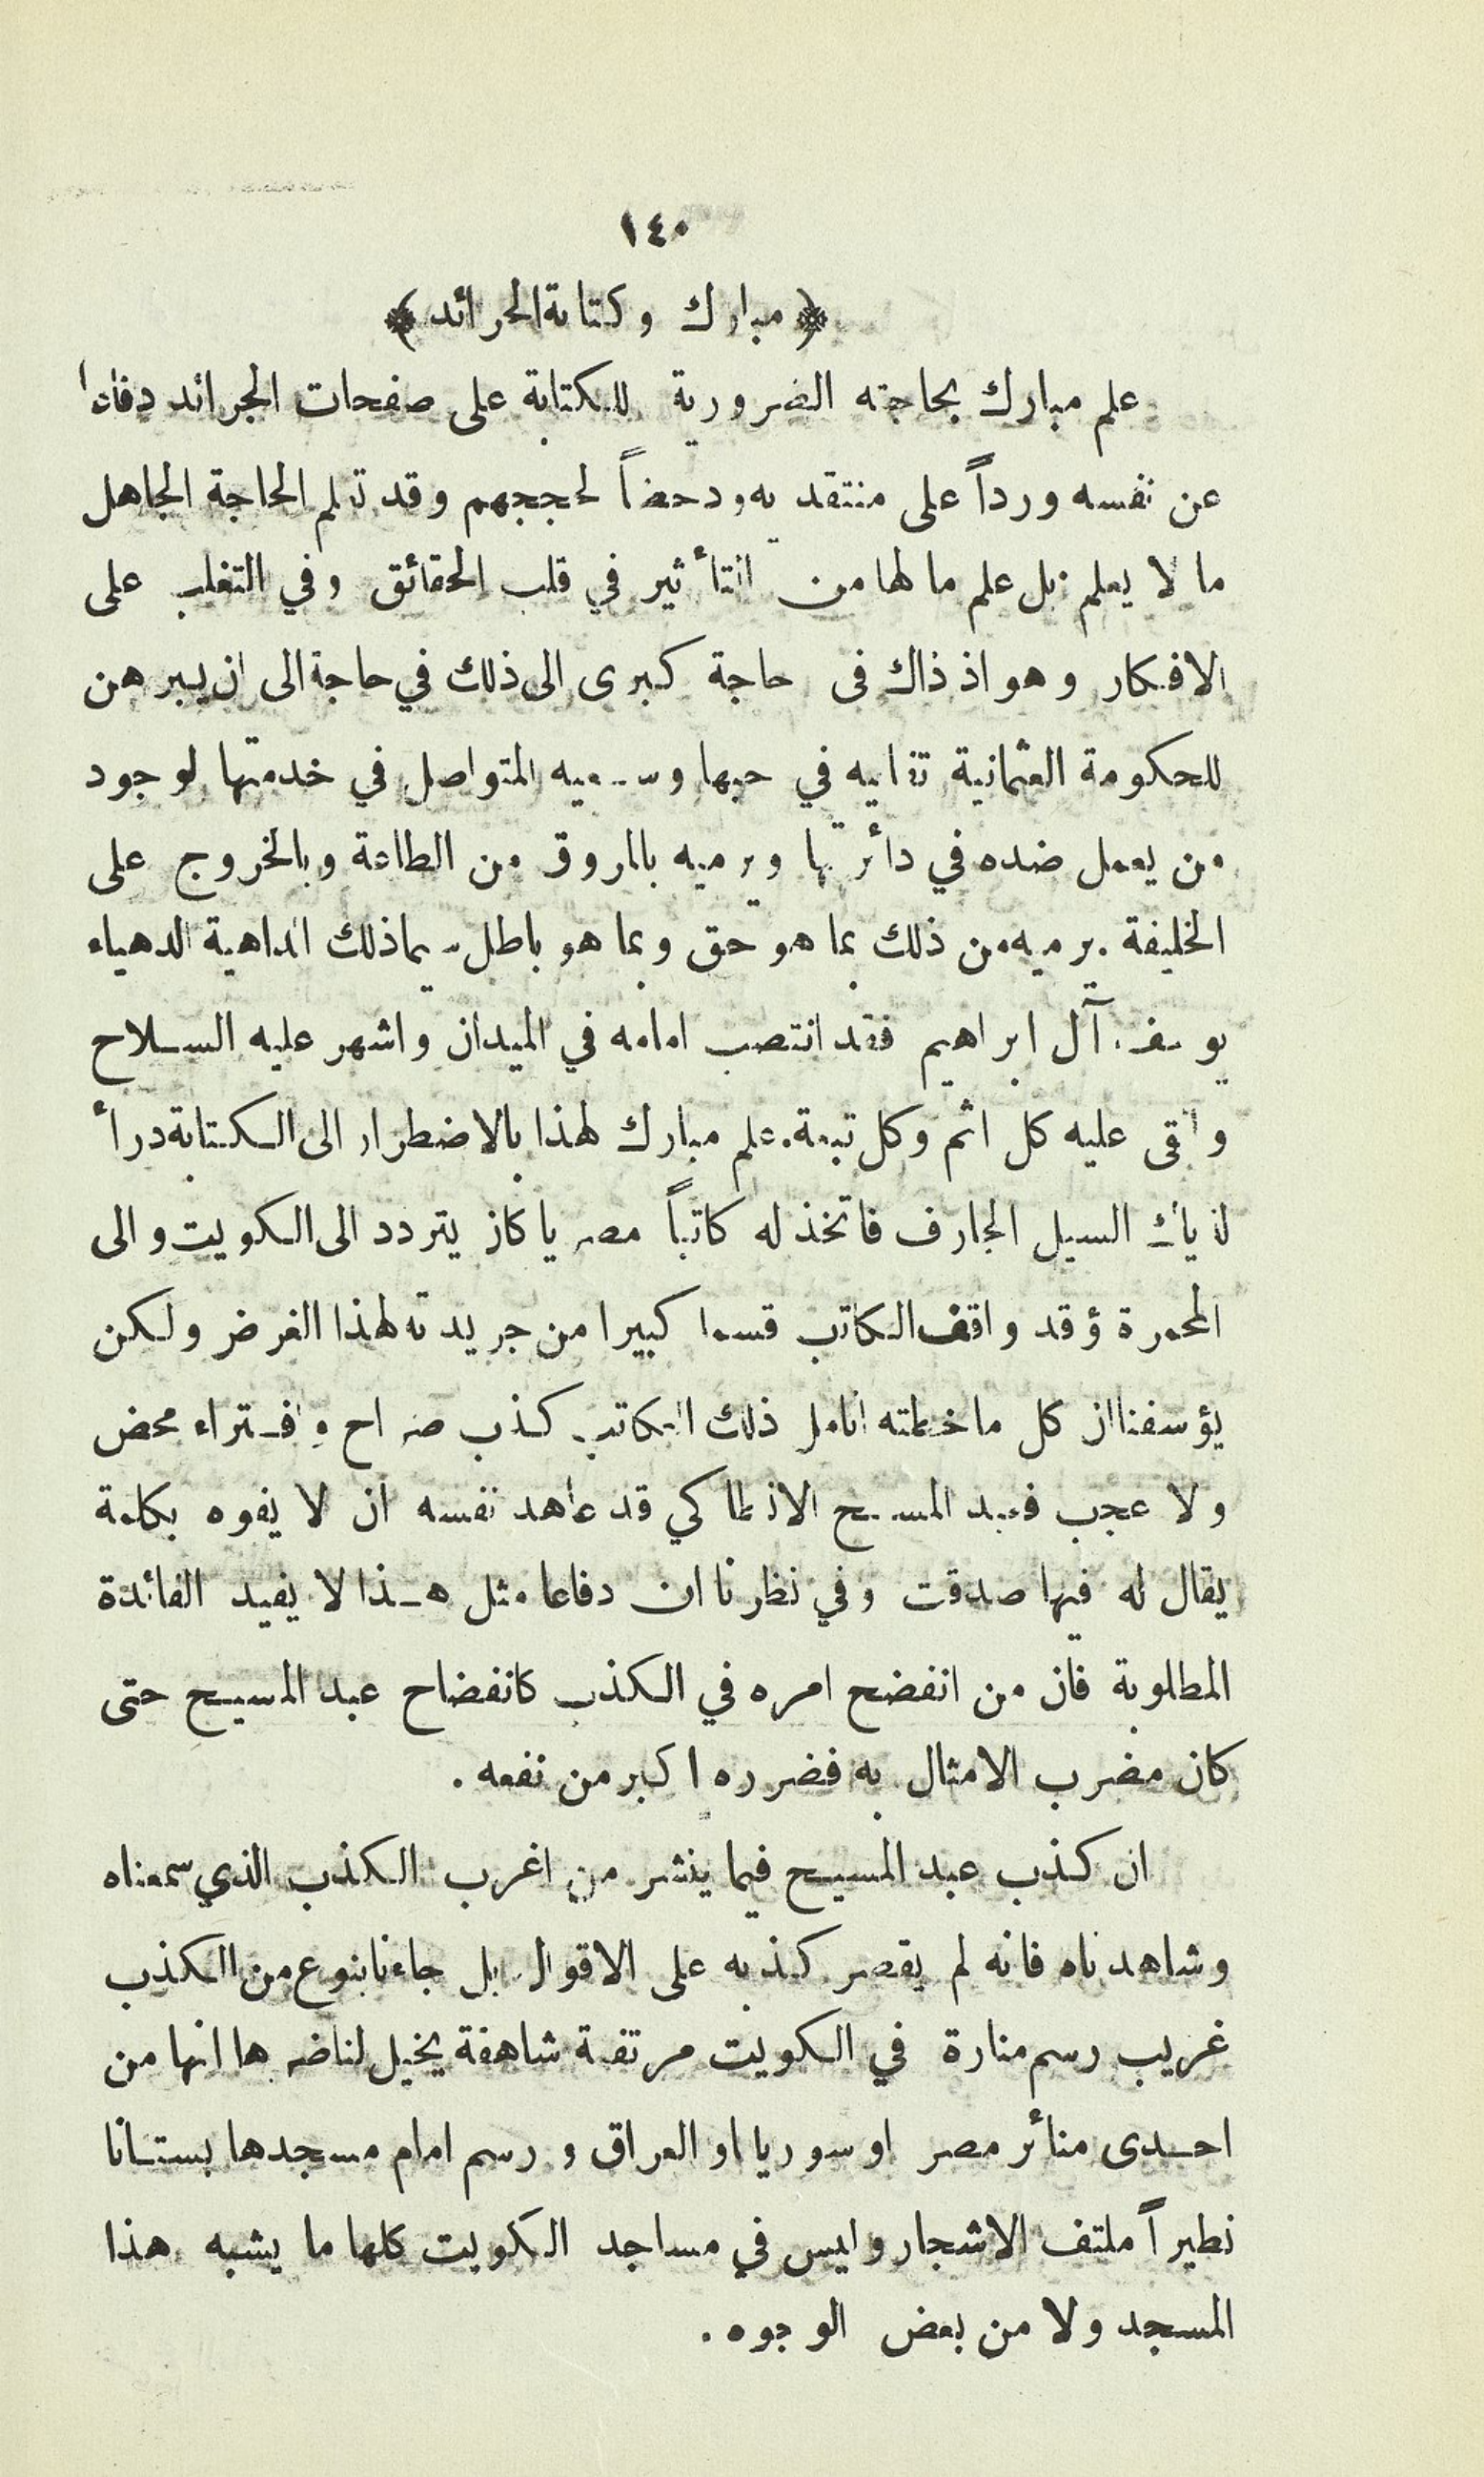 ١٤٠
﴿ مبارك وكتابة الجرائد ﴾
علم مبارك بحاجته الضرورية للكتابة على صفحات الجرائد دفاعا
عن نفسه ورداً على منتقديه ودحضاً لحججهم وقد تعلم الحاجة الجاهل
ما لا يعلم بل علم ما لها من التأثير في قلب الحقائق وفي التغلب على
الافكار وهو اذ ذاك فى حاجة كبرى الى ذلك في حاجة الى ان يبرهن
للحكومة العثمانية تفانيه في حبها وسعيه المتواصل في خدمتها لوجود
من يعمل ضده في دائرتها ويرميه بالمروق من الطاعة وبالخروج على
الخليفة . يرميه من ذلك بما هو حق وبما هو باطل سيما ذلك الداهية الدهياء
يوسف آل ابراهيم فقد انتصب امامه في الميدان واشهر عليه السلاح
والقى عليه كل اثم وكل تبعة . علم مبارك لهذا بالاضطرار الى الكتابة درأ
لذياك السيل الجارف فاتخذ له كاتباً مصريا كان يتردد الى الكويت والى
المحمرة وقد واقف الكاتب قسما كبيرا من جريدته لهذا الغرض ولكن
يؤسفنا ان كل ما خطته انامل ذلك الكاتب كذب صراح وافتراء محض
ولا عجب فعبد المسيح الانطاكي قد عاهد نفسه ان لا يفوه بكلمة
يقال له فيها صدقت وفي نظرنا ان دفاعا مثل هذا لا يفيد الفائدة
المطلوبة فان من انفضح امره في الكذب كانفضاح عبد المسيح حتى
كان مضرب الامثال به فضرره اكبر من نفعه .
ان كذب عبد المسيح فيما ينشر من اغرب الكذب الذي سمعناه
وشاهدناه فانه لم يقصر كذبه على الاقوال بل جاءنا بنوع من الكذب
غريب رسم منارة في الكويت مرتفعة شاهقة يخيل لناضرها انها من
احدى منائر مصر او سوريا او العراق ورسم امام مسجدها بستانا
نظيراً ملتف الاشجار وليس في مساجد الكويت كلها ما يشبه هذا
المسجد ولا من بعض الوجوه .